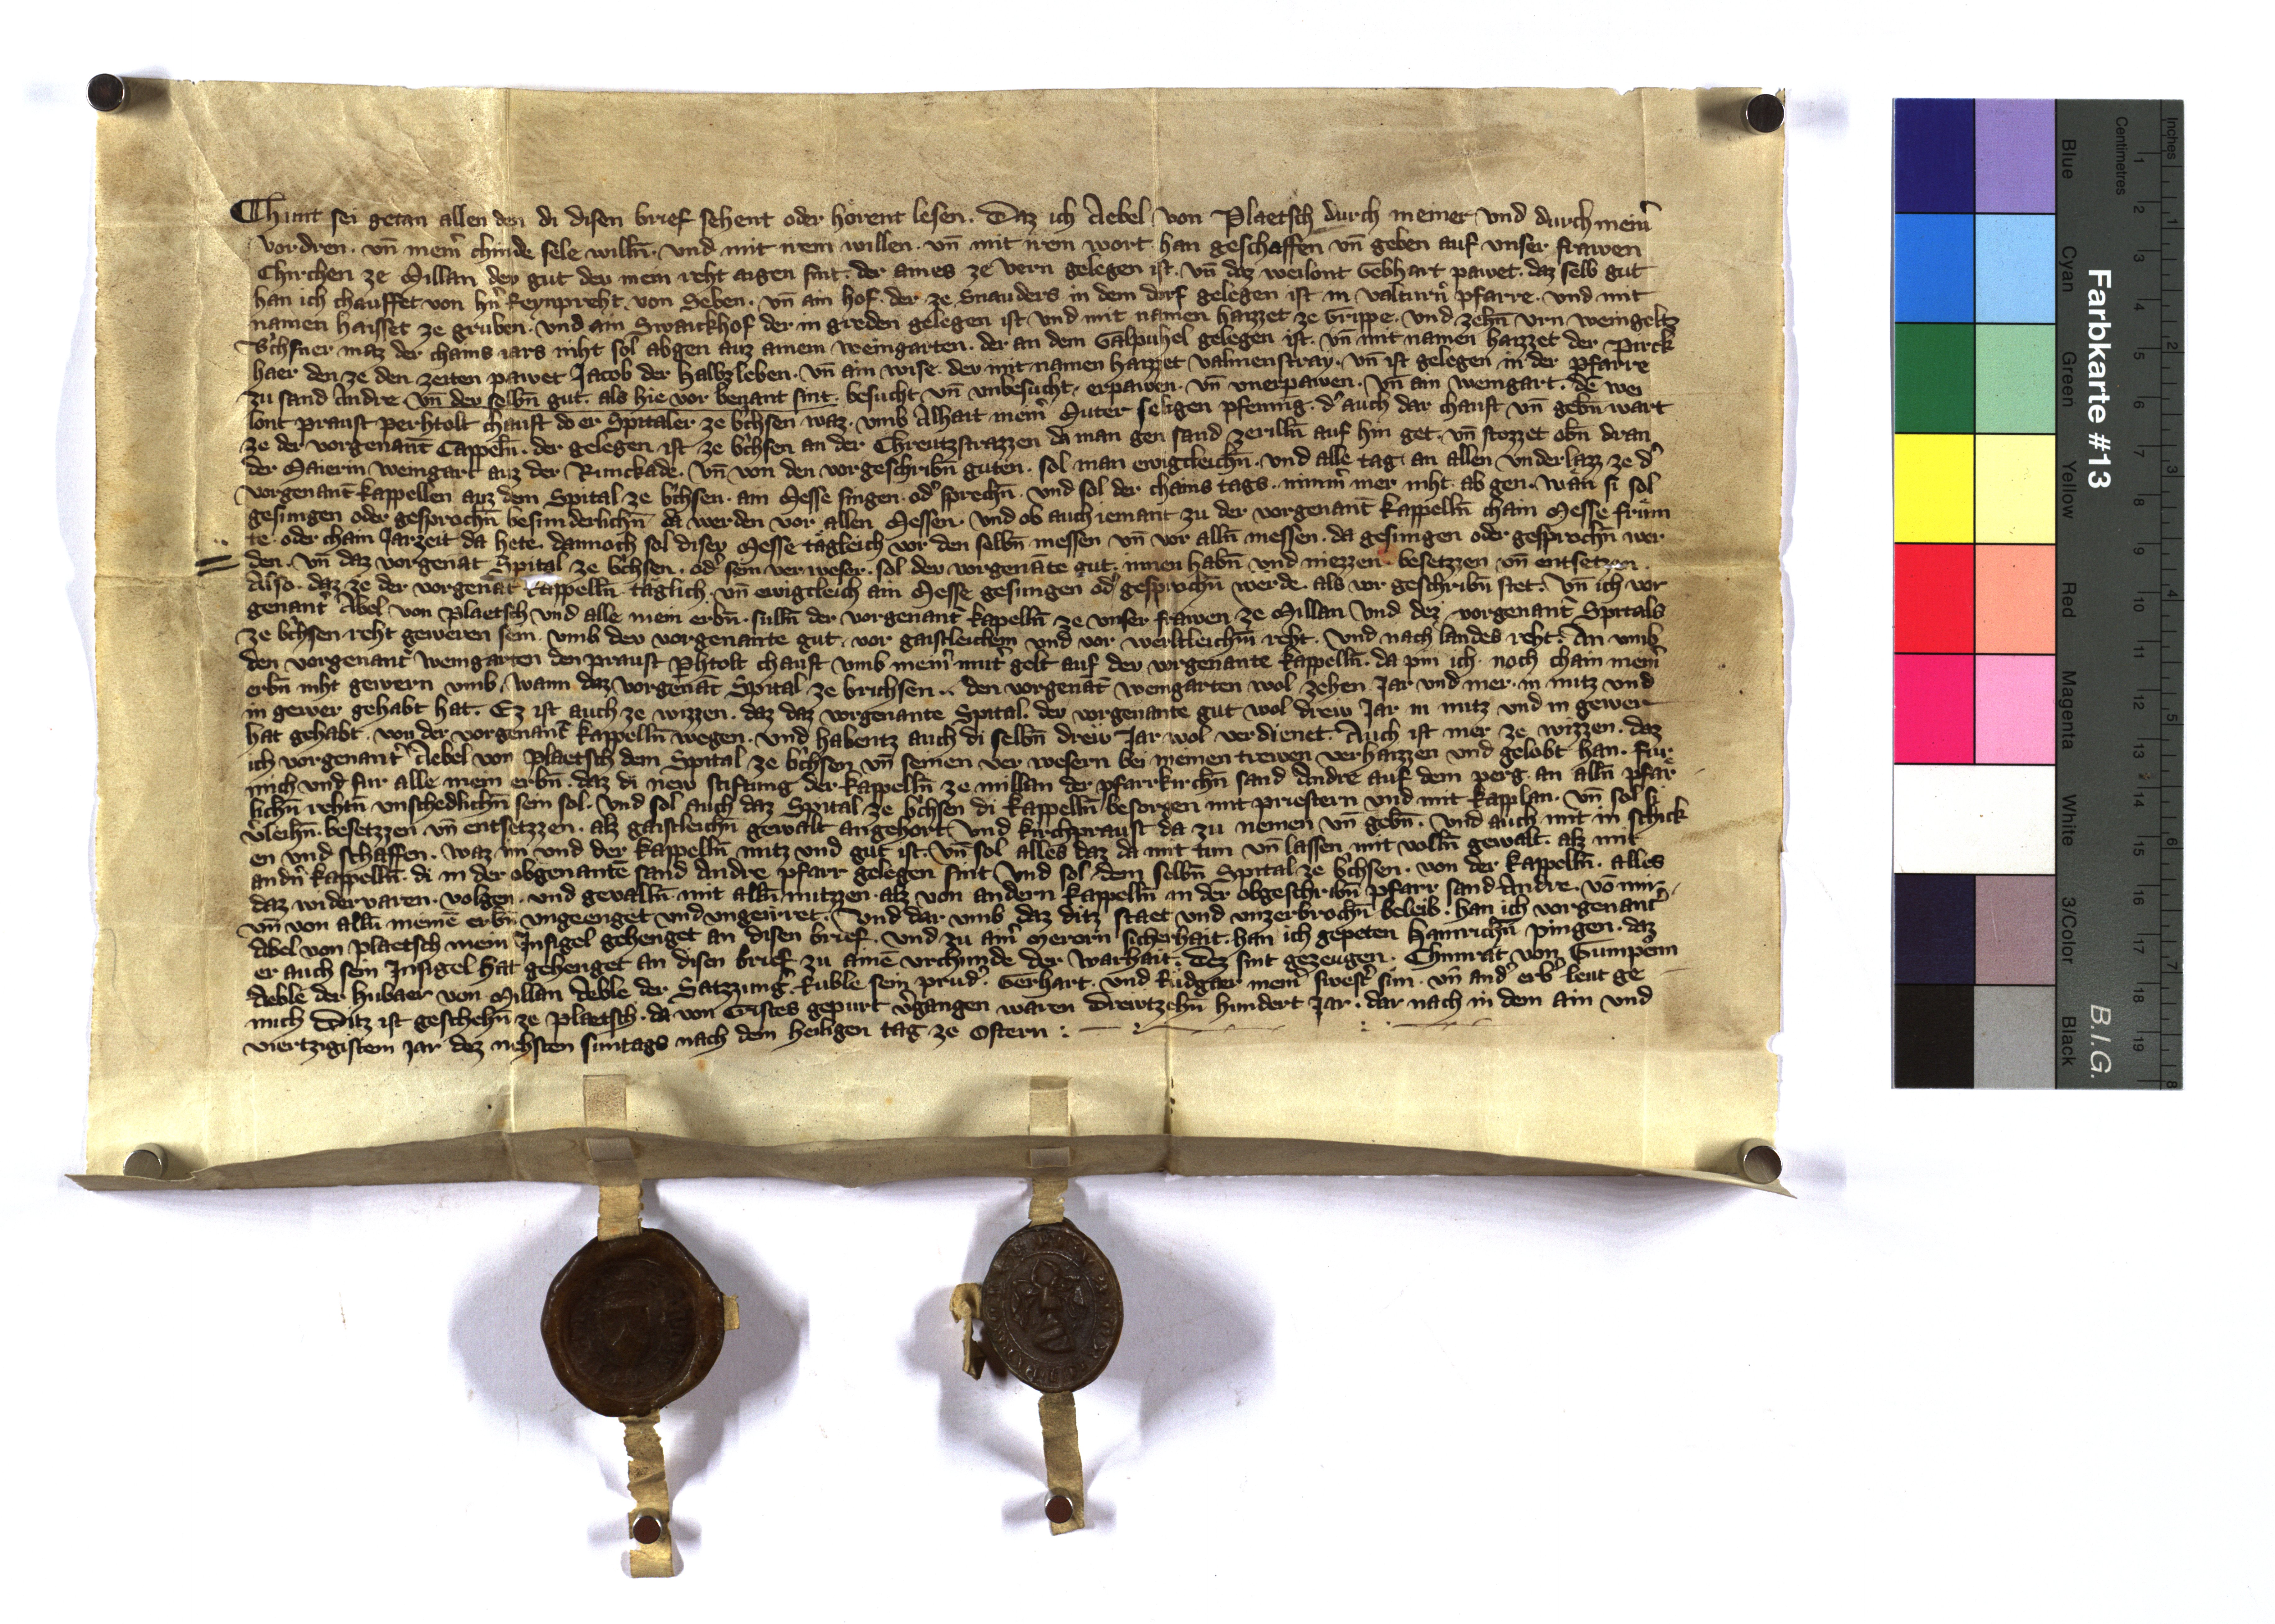 Chunt sei getan allen den di disen brief sehent oder hörent lesen. Daz ich Aebel von Plaetsch durch meiner und durch meinˀ
vordren. vn̄ meinˀ chinde sele willn̄. und mit irem willen. vn̄ mit irem wort han geschaffen vn̄ geben auf unser frawen
Chirchen ze Millan dev gut dev mein reht aigen sint. der aines ze Vern gelegen ist. vn̄ daz weilont Gebhart pawet. daz selb gut
han ich chauffet von hˀn Reynpreht von Seben. vn̄ ain hof. der ze Snauders in dem dorf gelegen ist in Valturnˀ pfarre. und mit
namen haisset ze gruben. und ain Swaickhof der in greden gelegen ist und mit namen haizzet ze Grippe. und zehn̄ vrn weingeltz
Bˀchsner maz der chains iars niht sol abgen auz ainem weingarten. der an dem Galpuhel gelegen ist. vn̄ mit namen haizzet der Pirck
haer den ze den zeiten pawet Jacob der Halbzleben. vn̄ ain wise. dev mit namen haizzet valmenstray. vn̄ ist gelegen in der pfarre
zu sand Andre. vn̄ der selbn̄ gut. als hie vor benant sint. besucht vn̄ vnbesucht. erpawen. vn̄ vnerpawen. vn̄ ain weingart. dē wei
lont praust perhtolt chauft do er Spitaler ze bˀchsen waz. vmb Alhait meinˀ Muter seligen pfennig. dˀ auch dar chauft vn̄ gebn̄ wart
ze der vorgenant̄ Cappeln̄. der gelegen ist ze bˀchsen an der Chreutzstrazzen da man gen sand zerilln̄ auf hin get. vn̄ stozzet obn̄ dran
der Maierin weingart auz der Runckade. vn̄ von den vorgeschribn̄ guten. sol man ewigcleichn̄. und alle tag an allen vnderlazz ze dˀ
vorgenant̄ kappellen auz dem Spital ze bˀchsen. ain Messe singen. odˀ sprechn̄. und sol der chains tags. nimmˀ mer niht ab gen. wan si sol
gesungen oder gesprochn̄ besunderlichn̄ da werden vor allen Messen. und ob auch iemant zu der vorgenant̄ kappelln̄ chain Messe frum
te. oder chain Jarzeit da hete. dannoch sol disev Messe tägleich vor den selbn̄ messen vn̄ vor alln̄ messen. da gesungen oder gesprochn̄ wer
den. vn̄ daz vorgenāt Spital ze bˀchsen. odˀ sein verweser. sol dev vorgenāte gut. innen habn̄ und niezzen besetzzen vn̄ entsetzen.
Also. daz ze der vorgenāt kappelln̄ täglich. vn̄ ewigcleich ain Messe gesungen odˀ gesprochn̄ werde. als vor geschribn̄ stet. vn̄ ich vor
genantˀ Abel von Plaetsch und alle mein erbn̄. suln̄ der vorgenantˀ kapelln̄ ze unser frawen ze Millan und dez vorgenantˀ Spitals
ze bˀchsen reht geweren sein. vmb dev vorgenante gut. vor gaistleichem und vor werltleichm̄ reht. und nach landes reht. An vmb
den vorgenant̄ weingarten den praust pˀhtolt chauft vmb meinˀ mutˀ gelt auf dev vorgenante kappelln̄. da pin ich noch chain meinˀ
erbn̄ niht gewern vmb. wann daz vorgenāt Spital ze brichsen.. den vorgenāt weingarten wol zehen Jar und mer. in nutz und
in gewer gehabt hat. Ez ist auch ze wizzen. daz daz vorgenante Spital. dev vorgenante gut wol drew Jar in nutz und in gewer
hat gehabt. von der vorgenant̄ kappelln̄ wegen. und habentz auch di selbn̄ drew Jar wol verdienet. Auch ist mer ze wizzen. daz
ich vorgenantˀ Aebel von Plaetsch dem Spital ze bˀchsen vn̄ seinen verwesern bei meinen trewen verhaizzen und gelobt han. fur
mich und fur alle mein erbn̄. daz di new stiftung der kappelln̄ ze millan der pfarrkirchn̄ sand Andre auf dem perg. an alln̄ pfar
lichn̄ rehtn̄ unschedlichn̄ sein sol. und sol auch daz Spital ze bˀchsen di kappelln̄ besorgen mit priestern und mit kapplan. vn̄ sol si
vˀleihn̄. besetzzen vn̄ entsetzzen. alz gaistleichn̄ gewalt angehort und kirchpraust da zu nemen vn̄ gebn̄. und auch mit in schick
en und schaffen. waz im und der kappelln̄ nutz und gut ist. vn̄ sol alles daz da mit tun vn̄ lassen mit volln̄ gewalt. alz mit
andn̄ kappelln̄. di in der obgenantē sand Andre pfarr gelegen sint und sol dem selbn̄ Spital ze bˀchsen. von der kappelln̄. alles
daz widervaren. volgen. und gevalln̄ mit alln̄ nutzzen. alz von andern kappelln̄ in der obgeschribn̄ pfarr sand Andre. vō mir
vn̄ von alln̄ meinē erbn̄ ungeenget und ungeirret. Und dar vmb daz ditz staet und unzerbrochn̄ beleib. han ich vorgenantˀ
Abel von Plaetsch mein Insigel gehenget an disen brief. und zu ainˀ merorn sicherhait. han ich gepeten Hainrichn̄ pingen. daz
er auch sein Insigel hat gehenget an disen brief zu ainē vrchunde der warhait. Dez sint gezeugen. Chunrat von Gumpenn
Aeble der Hubaer von Millan Aeble der Satzzung. Rüble sein prudˀ. Gerhart. und Rüdgaer meinˀ swestˀ sun. vn̄ andˀ erbˀ leut ge
nuch Ditz ist geschehn̄ ze plaetsch. da von Cristes gepurt vˀgangen waren Drewtzehn̄ hundert Jar. dar nach in dem ain und
viertzigistem jar dez nehsten suntags nach dem heiligen tag ze Ostern :
Farbkarte #13
B.I.G.
Inches
Centimetres
1 2 3 4 5 6 7 8
1 2 3 4 5 6 7 8 9 10 11 12 13 14 15 16 17 18 19
Blue
Cyan
Green
Yellow
Red
Magenta
White
3/Color
Black